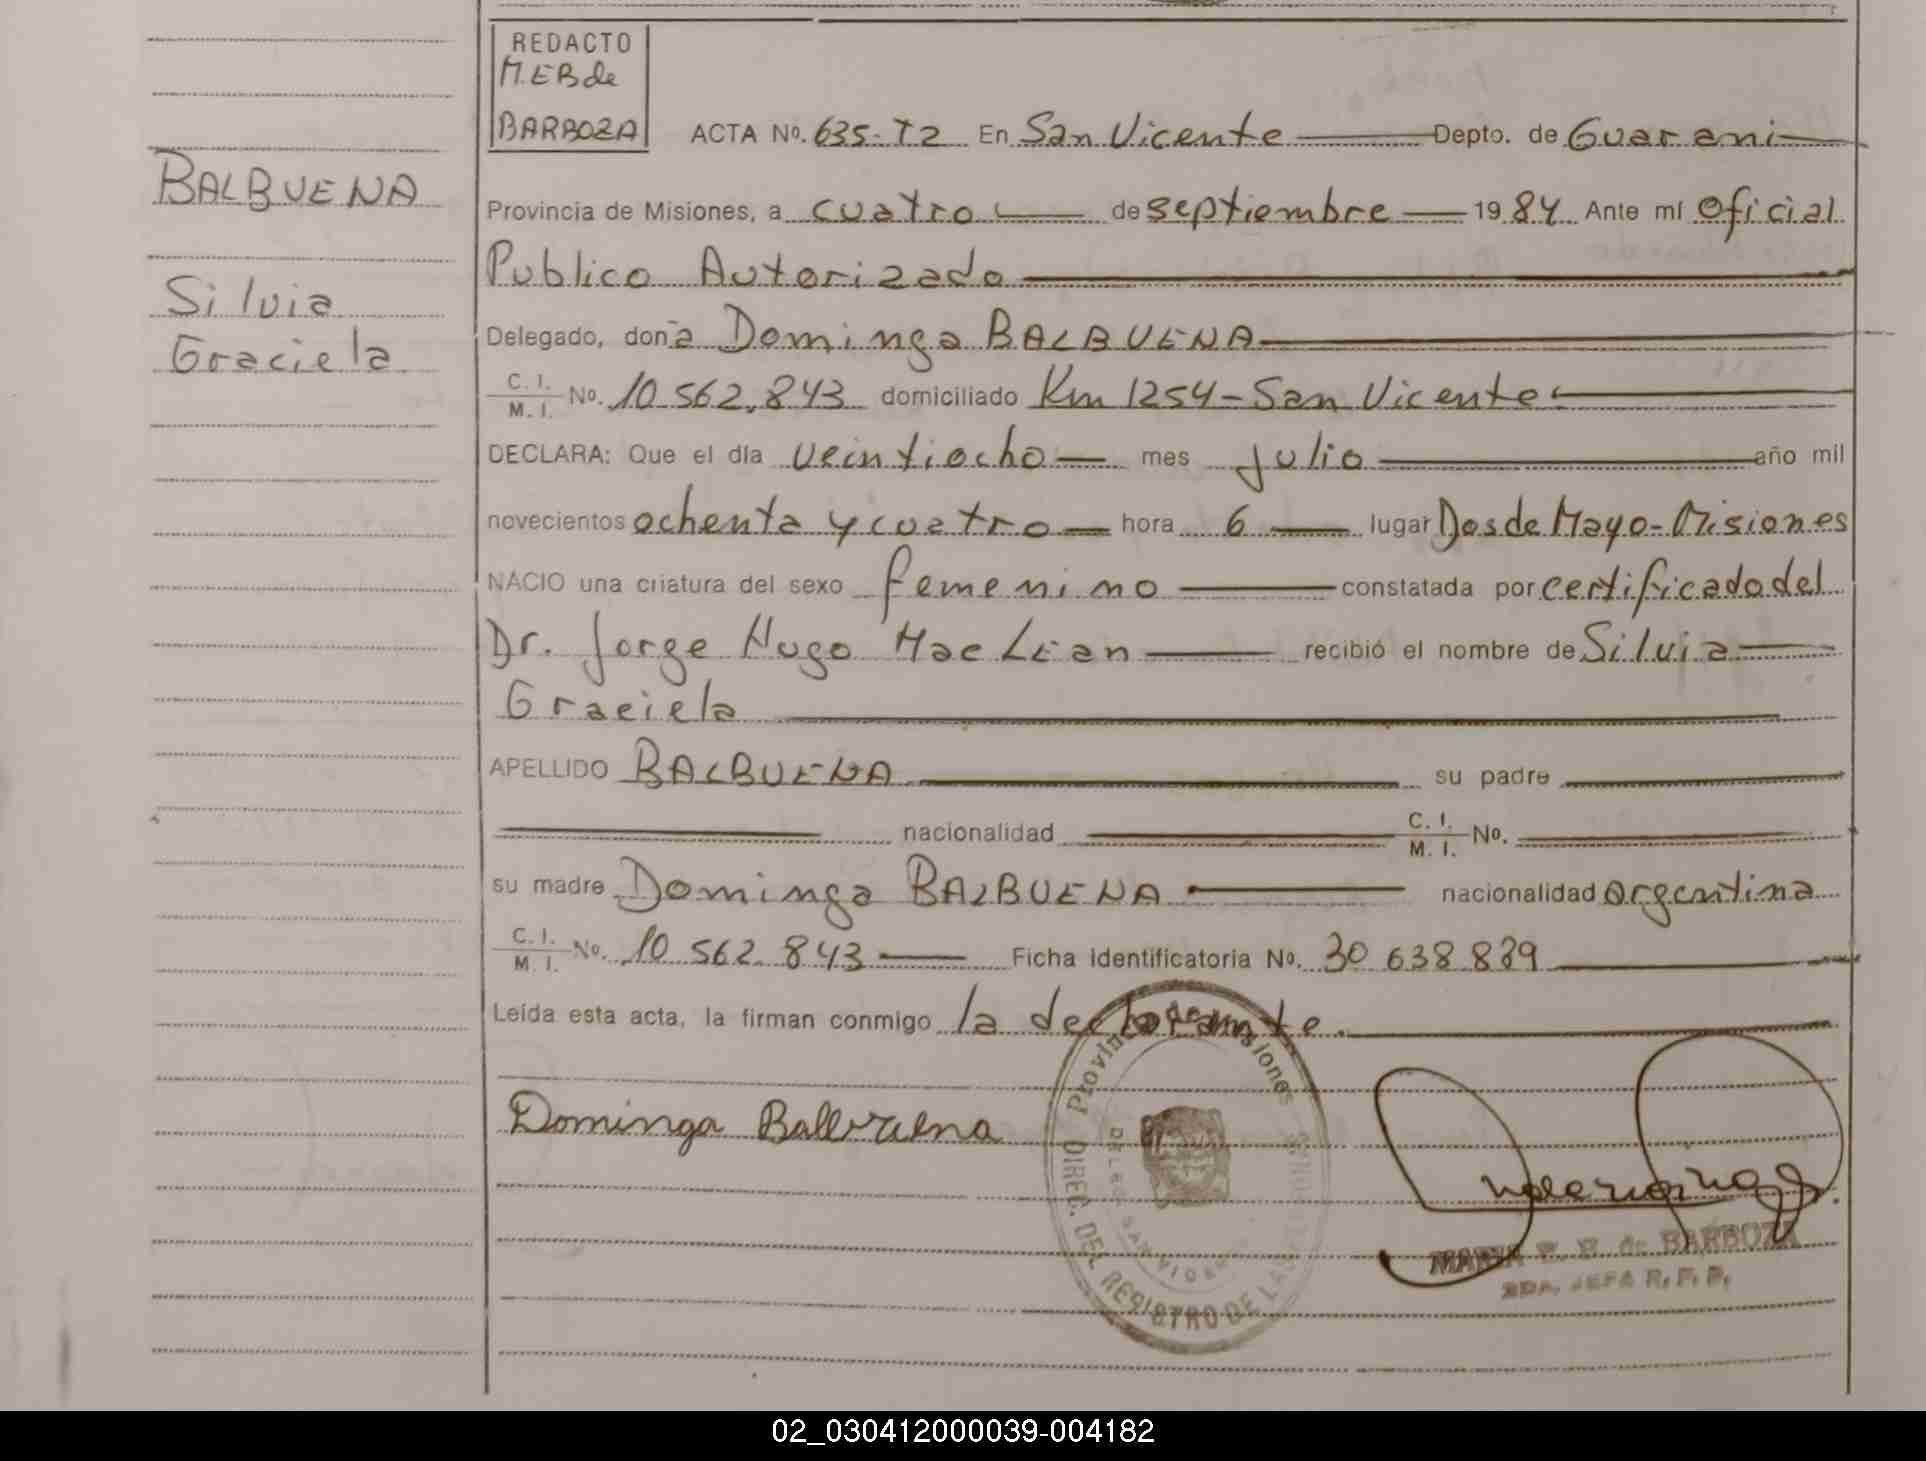 REDACTO
M.E.B de
BARBOZA
ACTA No. 635-T2 En San Vicente Depto. de Guarani
BALBUENA
Provincia de Misiones, a cuatro de septiembre 1984 Ante mí oficial
Publico Autorizado
Silvia
Graciela
Delegado, doña Dominga BALBUENA
C. I.
M. I. No. 10.562.843 domiciliado Km 1254-San Vicente
DECLARA: Que el día veintiocho mes julio año mil
novecientos ochenta y cuatro hora 6 lugar Dos de Mayo-Misiones
NACIO una criatura del sexo femenino constatada por certificado del
Dr. Jorge Hugo Mac Lean recibió el nombre de Silvia
Graciela
APELLIDO BALBUENA su padre
nacionalidad C. I.
M. I. No.
su madre Dominga BALBUENA nacionalidad argentina
C. I.
M. I. No. 10 562 843 Ficha Identificatoria No. 30 638 839
Leída esta acta, la firman conmigo la declarante.
Dominga Balbuena
Provincia de Misiones
DIREC. DEL REGISTRO DE LAS
MARIA E. B. de BARBOZA
2DA. JEFA R. P. P.
02_030412000039-004182